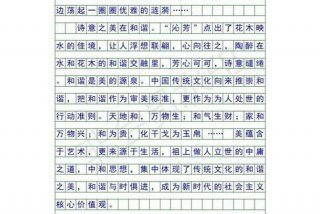 边荡起一圈圈优雅的涟漪……
诗意之美在和谐。“沁芳”点出了花木映
水的佳境，让人浮想联翩，心向往之，陶醉在
水和花木的和谐交融里，芳心可可，诗意缱绻
。和谐是美的源泉。中国传统文化向来推崇和
谐，把和谐作为审美标准，更作为为人处世的
行动准则。天地和，万物生；和气生财；家和
万物兴；和为贵，化干戈为玉帛……美蕴含
于艺术，更来源于生活，祖上做人立世的中庸
之道，中和思想，集中体现了传统文化的和谐
之美，和谐与时俱进，成为新时代的社会主义
核心价值观。